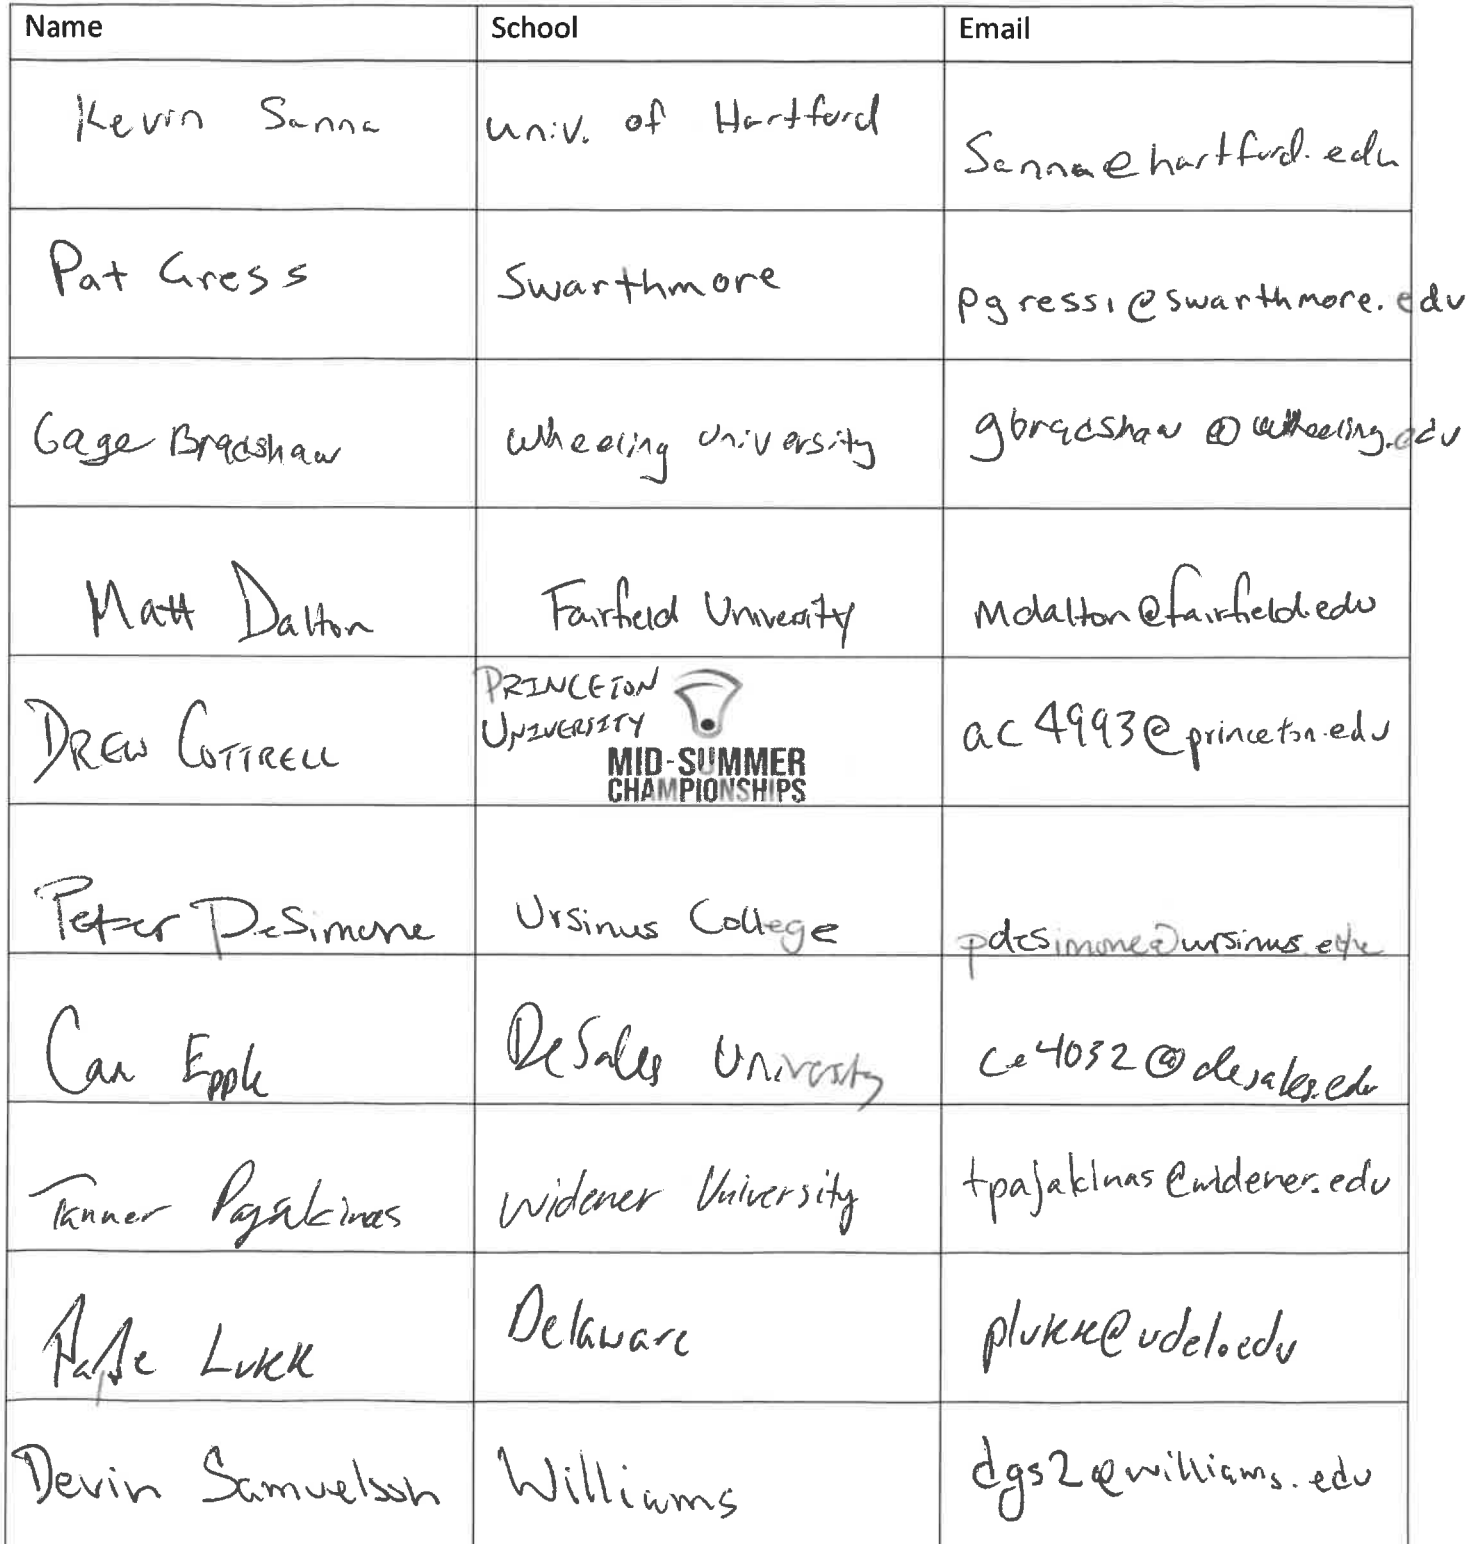 Name School Email
Kevin Sanna univ. of Hartford Sanna@hartford.edu
Pat Gress Swarthmore pgress1@swarthmore.edu
Gage Bradshaw Wheeling University gbradshaw@wheeling.edu
Matt Dalton Fairfield Univerity mdalton@fairfield.edu
DREW COTTRELL PRINCETON UNIVERSITY ac4993@princeton.edu
MID-SUMMER
CHAMPIONSHIPS
Peter DeSimone Ursinus College pdesimone@ursinus.edu
Cam Epple DeSales University ce4032@desales.edu
Tanner Pajakinas Widener University tpajakinas@widener.edu
Lukk Delaware plukk@udel.edu
Devin Samuelson Williams dgs2@williams.edu